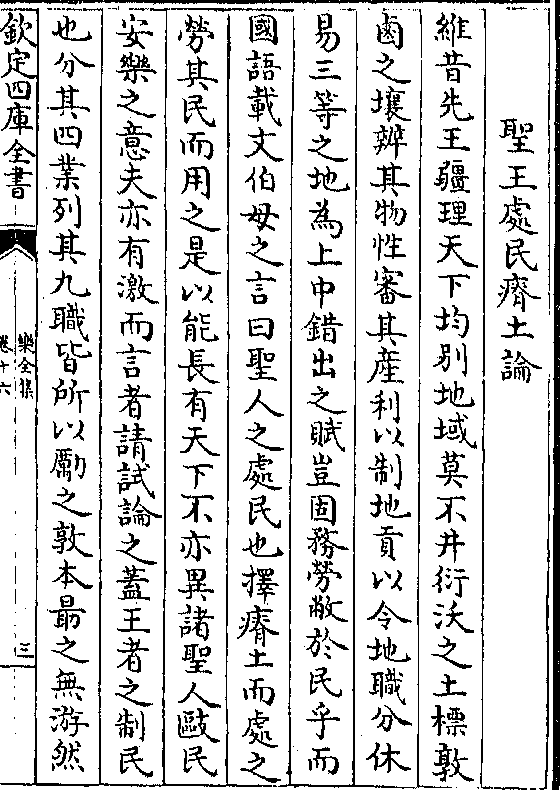 聖王處民瘠土論
維昔先王疆理天下均別地域莫不井衍沃之土標敦
鹵之壤辨其物性審其產利以制地貢以令地職分休
易三等之地為上中錯出之賦豈固務勞敝於民乎而
國語載文伯母之言曰聖人之處民也擇瘠土而處之
勞其民而用之是以能長有天下不亦異諸聖人敺民
安樂之意夫亦有激而言者請試論之蓋王者之制民
也分其四業列其九職皆所以勵之敦本最之無游然
欽定四庫全書
樂全集
卷十六
三